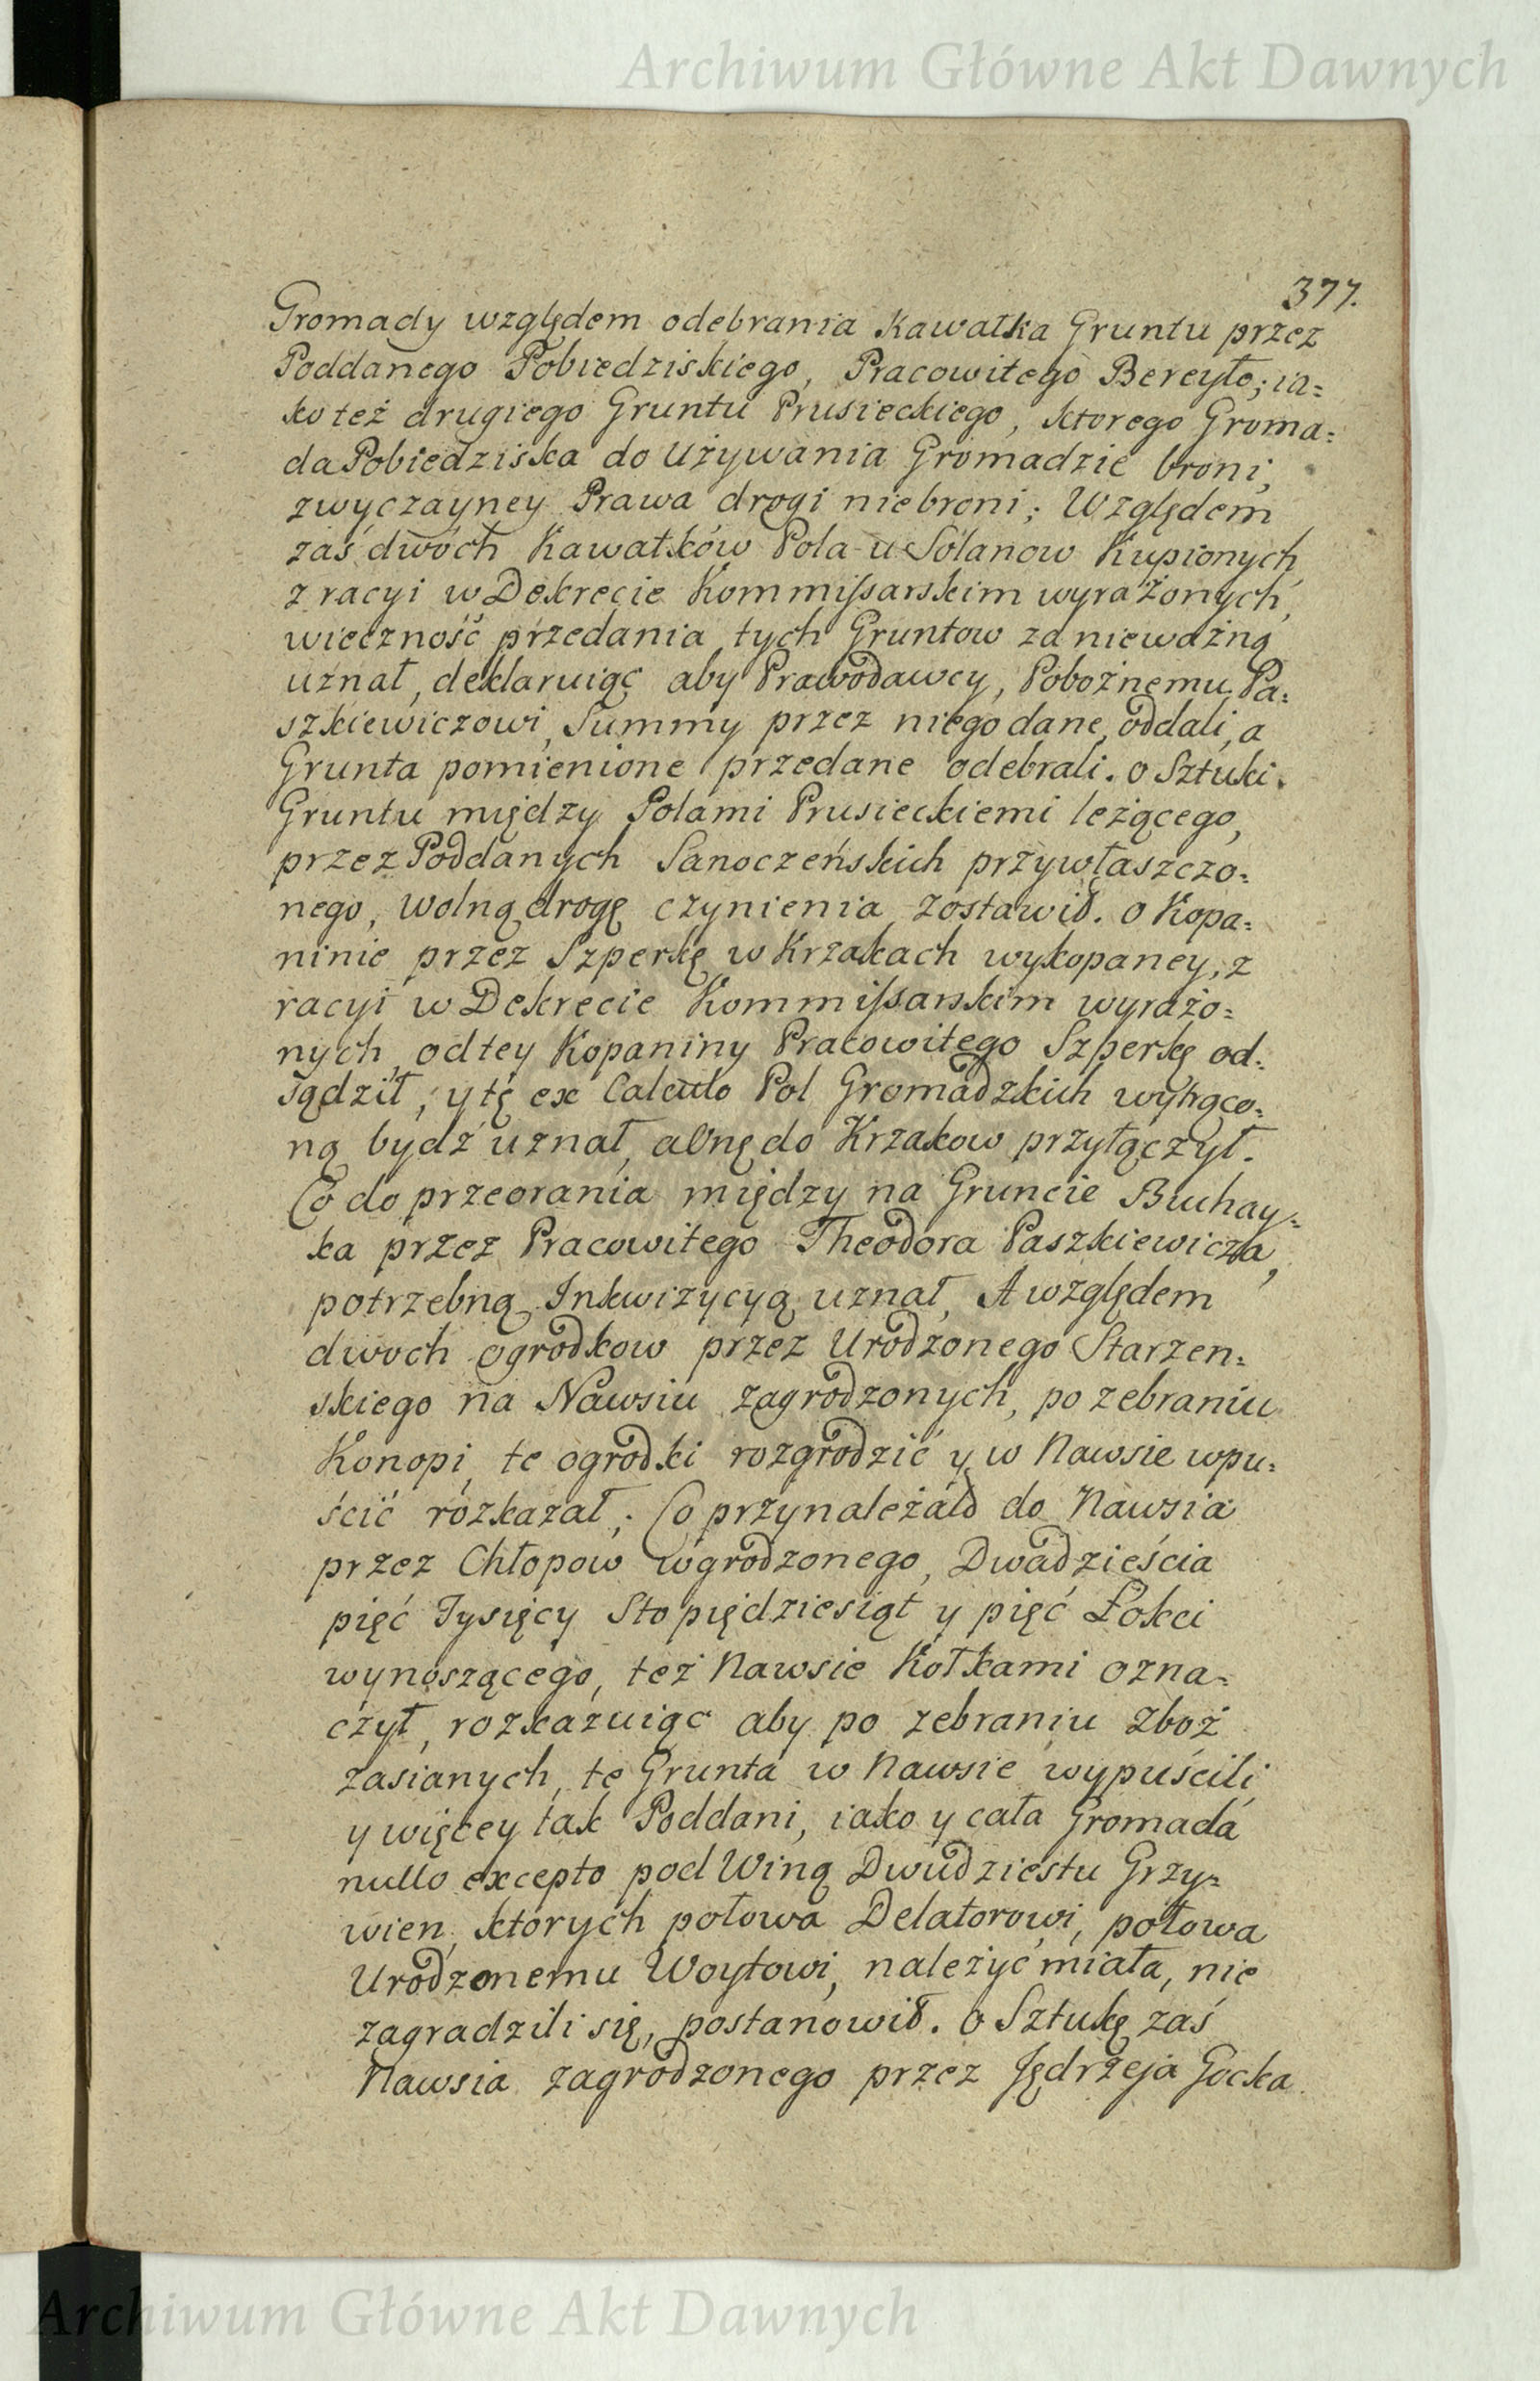 Archiwum Główne Akt Dawnych
377.
Gromady względem odebrania Kawałka Gruntu przez
Poddanego Pobiedziskiego, Pracowitego Bereyło; ia=
ko też drugiego Gruntu Prusieckiego, ktorego Groma=
da Pobiedziska do Używania Gromadzie broni,
zwyczayney Prawa drogi niebroni; Względem
zaś dwóch Kawałków Pola u Solanow Kupionych,
z racyi w Dekrecie Kommissarskim wyrażonych,
wieczność przedania tych Gruntow za nieważną
uznał, deklaruiąc aby Prawodawcy, Pobożnemu Pa=
szkiewiczowi, Summy przez niego dane, oddali, a
Grunta pomienione przedane odebrali. o Sztuki
Gruntu między Polami Prusieckiemi leżącego,
przez Poddanych Sanoczeńskich przywłaszczo=
nego, wolną drogę czynienia zostawił. o Kopa=
ninie przez Szperkę w Krzakach wykopaney, z
racyi w Dekrecie Kommissarskim wyrażo=
nych, od tey Kopaniny Pracowitego Szperkę od=
sądził, y tę ex Calculo Pol Gromadzkich wytrąco=
ną bydź uznał, a Onę do Krzakow przyłączył.
Co do przeorania między na Gruncie Buhay=
ka przez Pracowitego Theodora Paszkiewicza,
potrzebną Inkwizycyą uznał, A względem
dwoch ogrodkow przez Urodzonego Starzen=
skiego na Nawsiu zagrodzonych, po zebraniu
Konopi, te ogrodki rozgrodzić y w Nawsie wpu=
ścić rozkazał; Co przynależało do Nawsia
przez Chłopow wgrodzonego, Dwadzieścia
pięć Tysięcy Sto piędziesiąt y pięć Łokci
wynoszącego, też Nawsie Kołkami ozna=
czył, rozkazuiąc aby po zebraniu Zboż
zasianych, te Grunta w Nawsie wypuścili,
y więcey tak Poddani, iako y cała Gromada
nullo excepto pod Winą Dwudziestu Grzy=
wien, ktorych połowa Delatorowi, połowa
Urodzonemu Woytowi, należyć miała, nie
zagradzili się, postanowił. o Sztukę zaś
Nawsia zagrodzonego przez Jędrzeja Gocka
Archiwum Główne Akt Dawnych